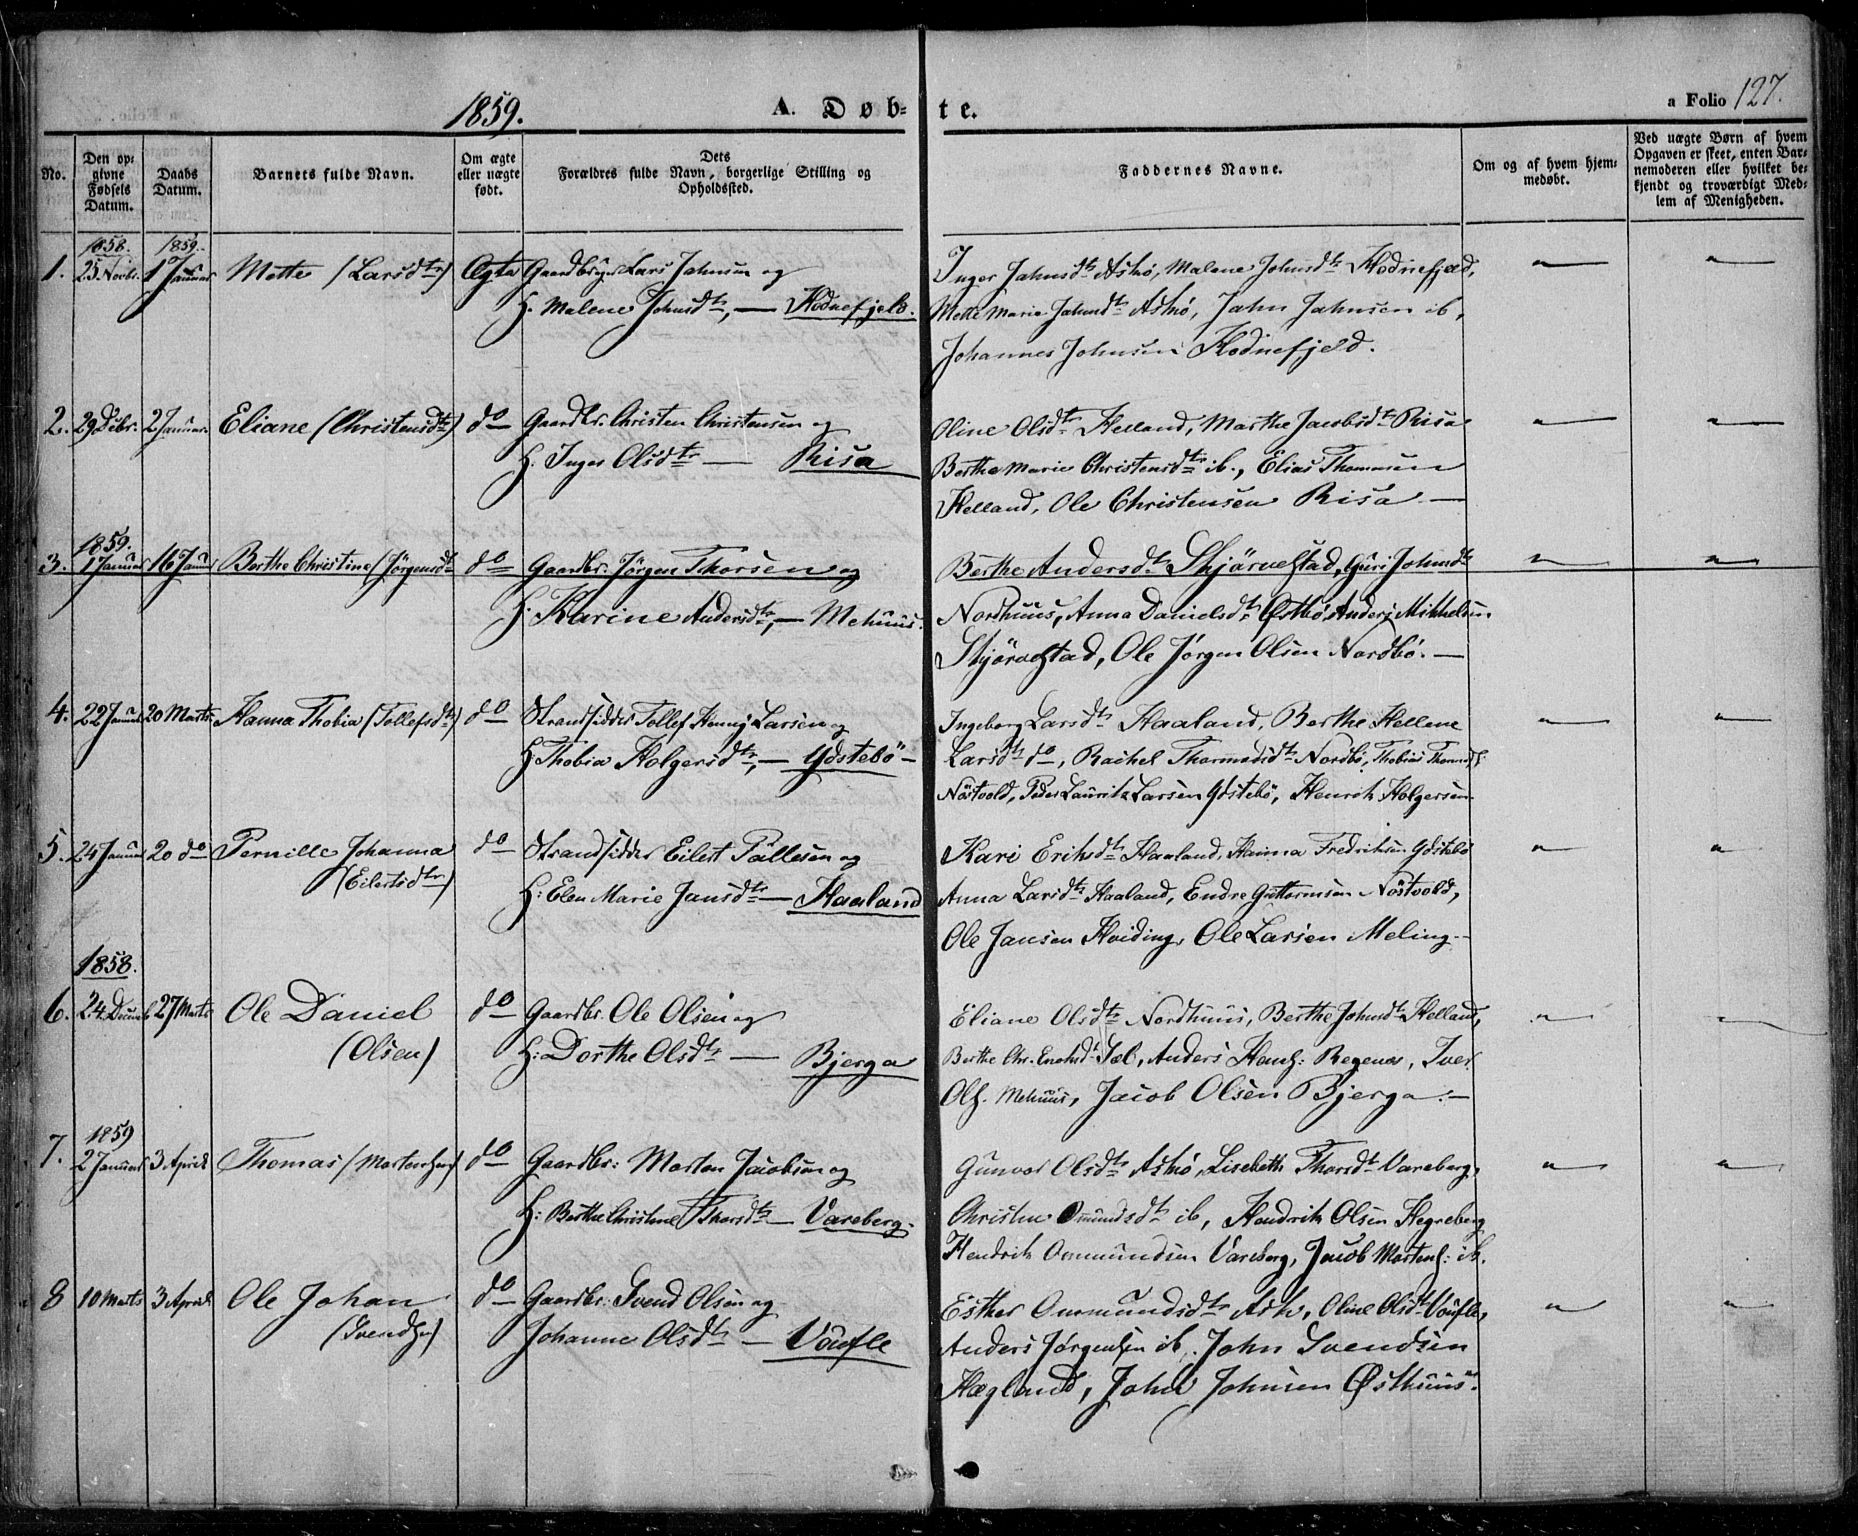 1859.
A. Døb-
te.
a Folio 127.
No.
Den op-
givne
Fødsels
Datum.
Daabs
Datum.
Barnets fulde Navn.
Om ægte
eller uægte
født.
Dets
Forældres fulde Navn, borgerlige Stilling og
Opholdssted.
Faddernes Navne.
Om og af hvem hjem-
medøbt.
Ved uægte Børn af hvem
Opgaven er skeet, enten Bar-
nemoderen eller hvilket be-
kjendt og troværdigt Med-
lem af Menigheden.
1858. 1859.
1. 25 Novbr. 1 Januar Mette (Larsdtr) Ægte Gaardbruger Lars Johnsen og
H. Malene Johnsdtr, — Kodnefjeld.
Inger Johnsdtr Askø, Malene Johnsdtr Kodnefjeld,
Mette Marie Johnsdtr Askø, John Johnsen ib,
Johannes Johnsen Kodnefjeld.
2. 29 Debr. 2 Januar. Eliane (Christensdtr) do Gaardbr. Christen Christensen og
H: Inger Olsdtr — Risa
Oline Olsdtr Helland, Marthe Jacobsdtr Risa
Berthe Marie Christensdtr ib., Elias Thomasen
Helland, Ole Christensen Risa —
1859.
3. 1 Januar 16 Janu Berthe Christine (Jørgensdtr do Gaardbr. Jørgen Thorsen og
H. Karine Andersdtr, — Mehuus.
Berthe Andersdtr Skjørvestad, Guri Johnsdtr
Nordhuus, Anna Danielsdtr Østbø, Anders Mikkelsen
Skjørvestad, Ole Jørgen Olsen Nordbø. —
4. 22 Januar 20 Marts Hanna Thobia (Tollefsdtr) do Strandsidder Tollef Larsen og
H Thobia Holgersdtr, — Ydstebö —
Ingeborg Larsdtr Haaland, Berthe Hellene
Larsdtr do, Rachel Thormodsdtr Nordbø, Thobias
Nöstvold, Peder Lauritz Larsen Ydstebö, Henrik Holgersen
5. 24 Januar 20 do Pernille Johanna do Strandsidder Eilert Pallesen og
(Eilertsdtr)
H: Elen Marie Jansdtr — Haaland
Kari Eriksdtr Haaland, Hanna Fredriksen Ydstebö
Anna Larsdtr Haaland, Endre Guttormsen Nöstvold,
Ole Jansen Hviding, Ole Larsen Meling —
1858.
6. 24. Decemb 27 Marts Ole Daniel do Gaardbr. Ole Olsen og
(Olsen)
H: Dorthe Olsdtr — Bjerga
Eliane Olsdtr Nordhuus, Berthe Johnsdtr Helland,
Berthe Chr. Sæl, Anders Hans: Regenæs, Iver
Ols. Mehuus, Jacob Olsen Bjerga. —
1859
7. 2 Januar 3 April Thomas (Mortensen) do Gaardbr: Morten Jacobsen og
H: Berthe Christine Thorsdtr — Vareberg.
Gunvor Olsdtr Askø, Lisebeth Thorsdtr Vareberg,
Christine Omundsdtr ib, Hendrik Olsen Hegreberg
Hendrik Ommundsen Vareberg, Jacob Mortens: ib.
8 10 Marts 3 April Ole Johan do Gaardbr. Svend Olsen og
(Svendsen)
Johanne Olsdtr — Voufle
Esther Ommundsdtr Ask, Oline Olsdtr Voufle,
Anders Jørgensen ib, John Svendsen
Hægland, John Johnsen Østhuus.